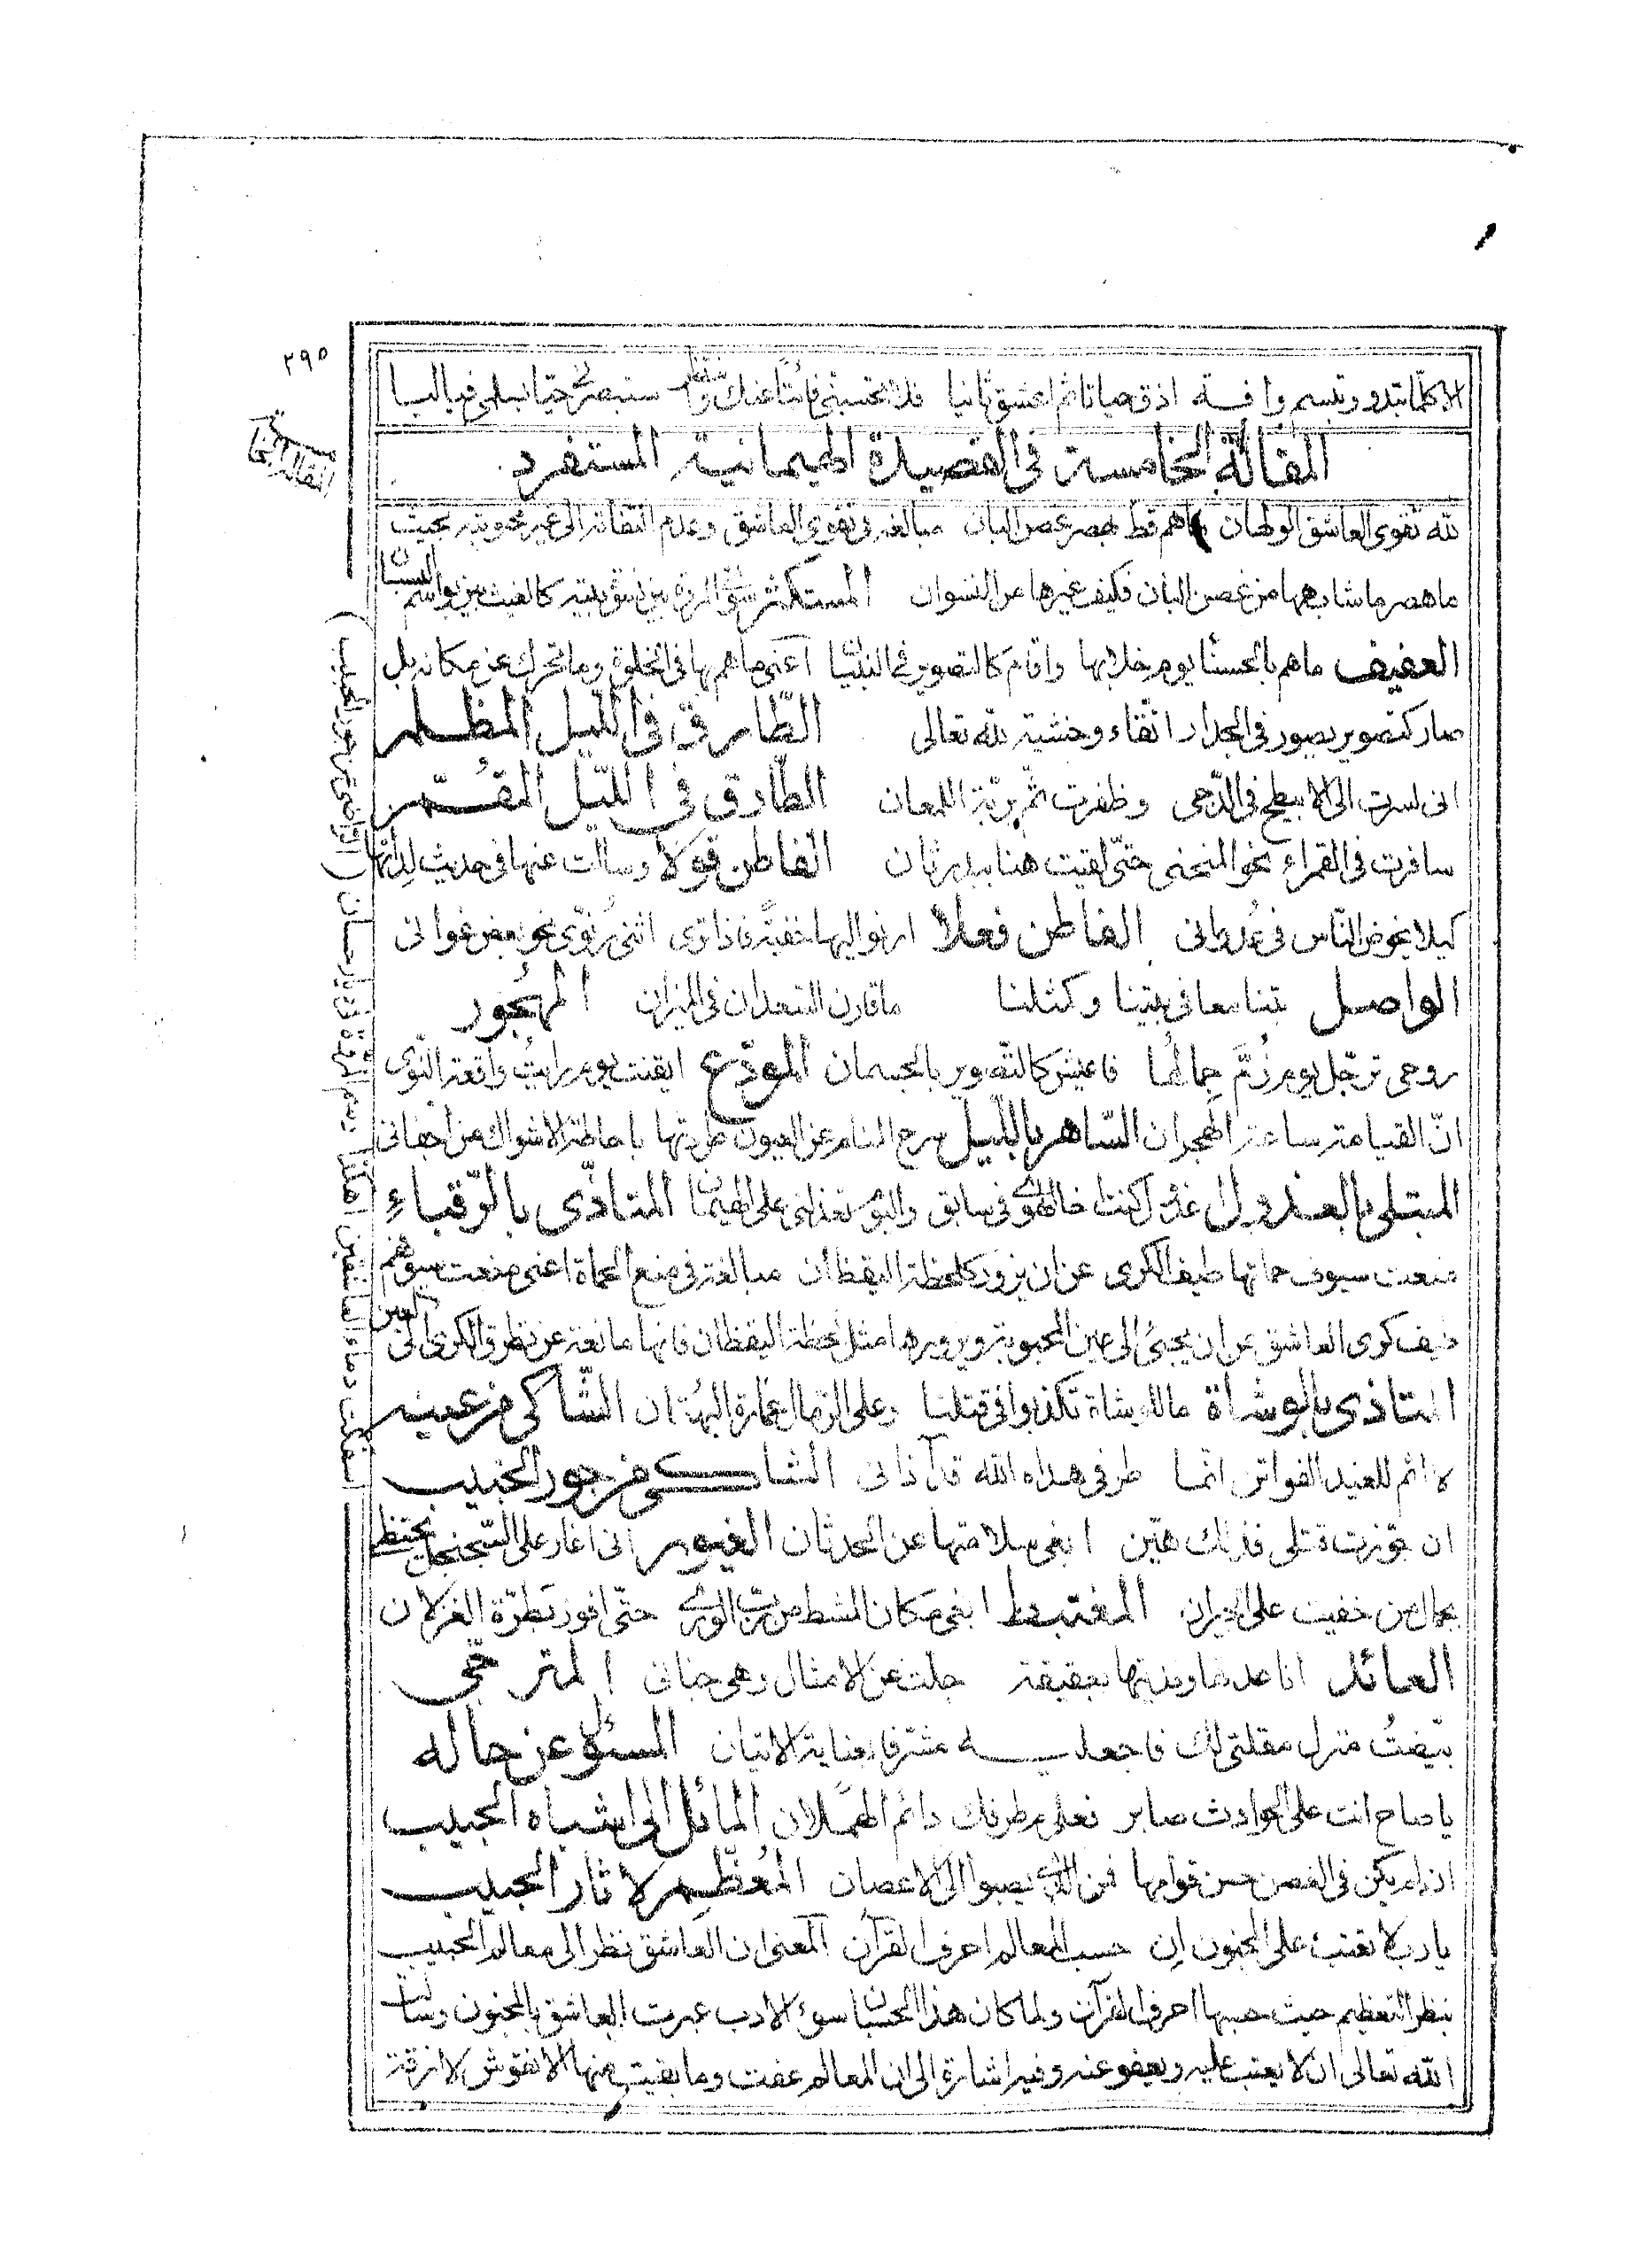 ٢٩٥
الا كلما تبدو وتبسم وافــة اذق حياتا ثم اعشق ثانيا فلا تحسبني فائتا عنك ستبصرني حيا
المقالة الخامسة فى القصيدة الهيمانية المستفرد
لله تقوى العاشق الولهان ما هم قط بهصر غصن البان مبالغة فى تقوى العاشق وعدم التفاته الى غير محبوبته بحيث
ما هصر ما شابهها من غصن البان فكيف غيرها من النسوان المستكثر
العفيف ما هم بالحسنا يوم خلا بها واقام كالتصوير فى البنيان اعنى ما هم بها فى الخلوة وما تحرك عن مكانه بل
صار كتصوير يصور فى الجدار اتقاء وخشية لله تعالى الطارق فى الليل المظلم
انى لسرت الى الابيطح فى الدجى وظفرت ثم بربة اللمعان الطارق فى الليل المقمر
سافرت فى القمراء نحو المنحنى حتى لقيت هنا ببدر ثان الفاطن قولا وسالت عنها فى حديث
كيلا يخوض الناس فى عدوانى الفاطن فعلا ارنو اليها خفية فاذا ترى اثنى نحو بعض غوانى
الواصل بتنا معا فى بيتنا وكمثلنا ما قارن السعدان فى الميزان المهجور
روحى ترحل يوم زم جمالها فاعيش كالتصوير بالجسمان المودع ايقنت يوم رايت واقعة النوى
ان القيامة ساعة الهجران الساهر بالليل سرح المنام عن العيون طردتها باحاطة الاشواك من اجفانى
المبتلى بالعذول عذل كنت خال الهوى فى سابق واليوم تعذلنى على الهيمان المتاذى بالرقباء
منعت سيوف حماتها طيف الكرى عن ان يزور كلحظة اليقظان مبالغة فى منع الحماة اعنى منعت سيوفهم
طيف كرى العاشق عن ان يجئ الى عين المحبوبة ويزورها مثل لحظة اليقظان فانها مانعة عن تطرق الكرى الى العين
المتاذى بالوشاة ما للوشاة تكذبوا فى قتلنا وعلى الرمال عمارة البهتان الشاكى من عينيه
لا اثم للغيد الفواتن انما طرفى هداه الله قد آذانى الشاكى من جور الحبيب
ان جوزت قتلى فذلك هين ابغى سلامتها عن الحدثان الغيور انى اغار على السجنجل يحتظى
بجمال من خفيت على الجيران المغتبط ابغى مكان المشط من رب الورى حتى افوز بطرة الغزلان
العائد انا عندها وفديتها بحقيقة جلت عن الامثال وهى جنانى المترجى
بيضت منزل مقلتى لك فاجعلـــه مشرفا بعناية الاتيان المسئول عن حاله
يا صاح انت على الحوادث صابر فعلى م طرفك دائم الهملان المائل الى اشباه الحبيب
ان لم يكن فى الغصن حسن قوامها فمن الذى يصبو الى الاغصان المعظم لاثار الحبيب
يا رب لا تعتب على المجنون ان حسب المعالم احرف القرآن المعنى ان العاشق نظر الى معالم الحبيب
بنظر التعظيم حيث حسبها احرف القرآن ولما كان هذا الحسبان سوء الادب عبرت العاشق بالمجنون وسالت
الله تعالى ان لا يعتب عليه ويعفو عنه وفيه اشارة الى ان المعالم عفت وما بقيت منها الا نقوش لازقة